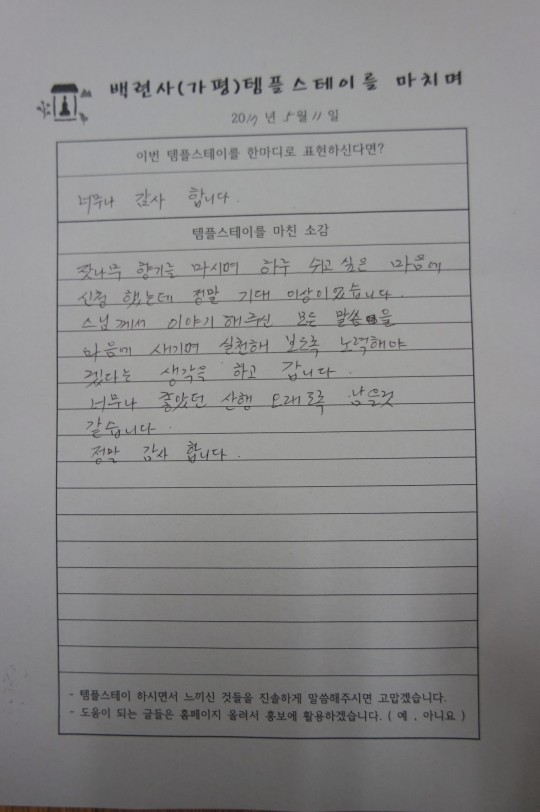 백련사(가평)템플스테이를 마치며
2017 년 5 월 11 일
이번 템플스테이를 한마디로 표현하신다면?
너무나 감사 합니다.
템플스테이를 마친 소감
잣나무 향기를 마시며 하루 쉬고 싶은 마음에
신청 했는데 정말 기대 이상이였습니다.
스님께서 이야기 해주신 모든 말씀을
마음에 새기며 실천해 보도록 노력해야
겠다는 생각을 하고 갑니다.
너무나 좋았던 산행 오래도록 남을것
같습니다.
정말 감사 합니다.
- 템플스테이 하시면서 느끼신 것들을 진솔하게 말씀해주시면 고맙겠습니다.
- 도움이 되는 글들은 홈페이지 올려서 홍보에 활용하겠습니다. ( 예 , 아니요 )